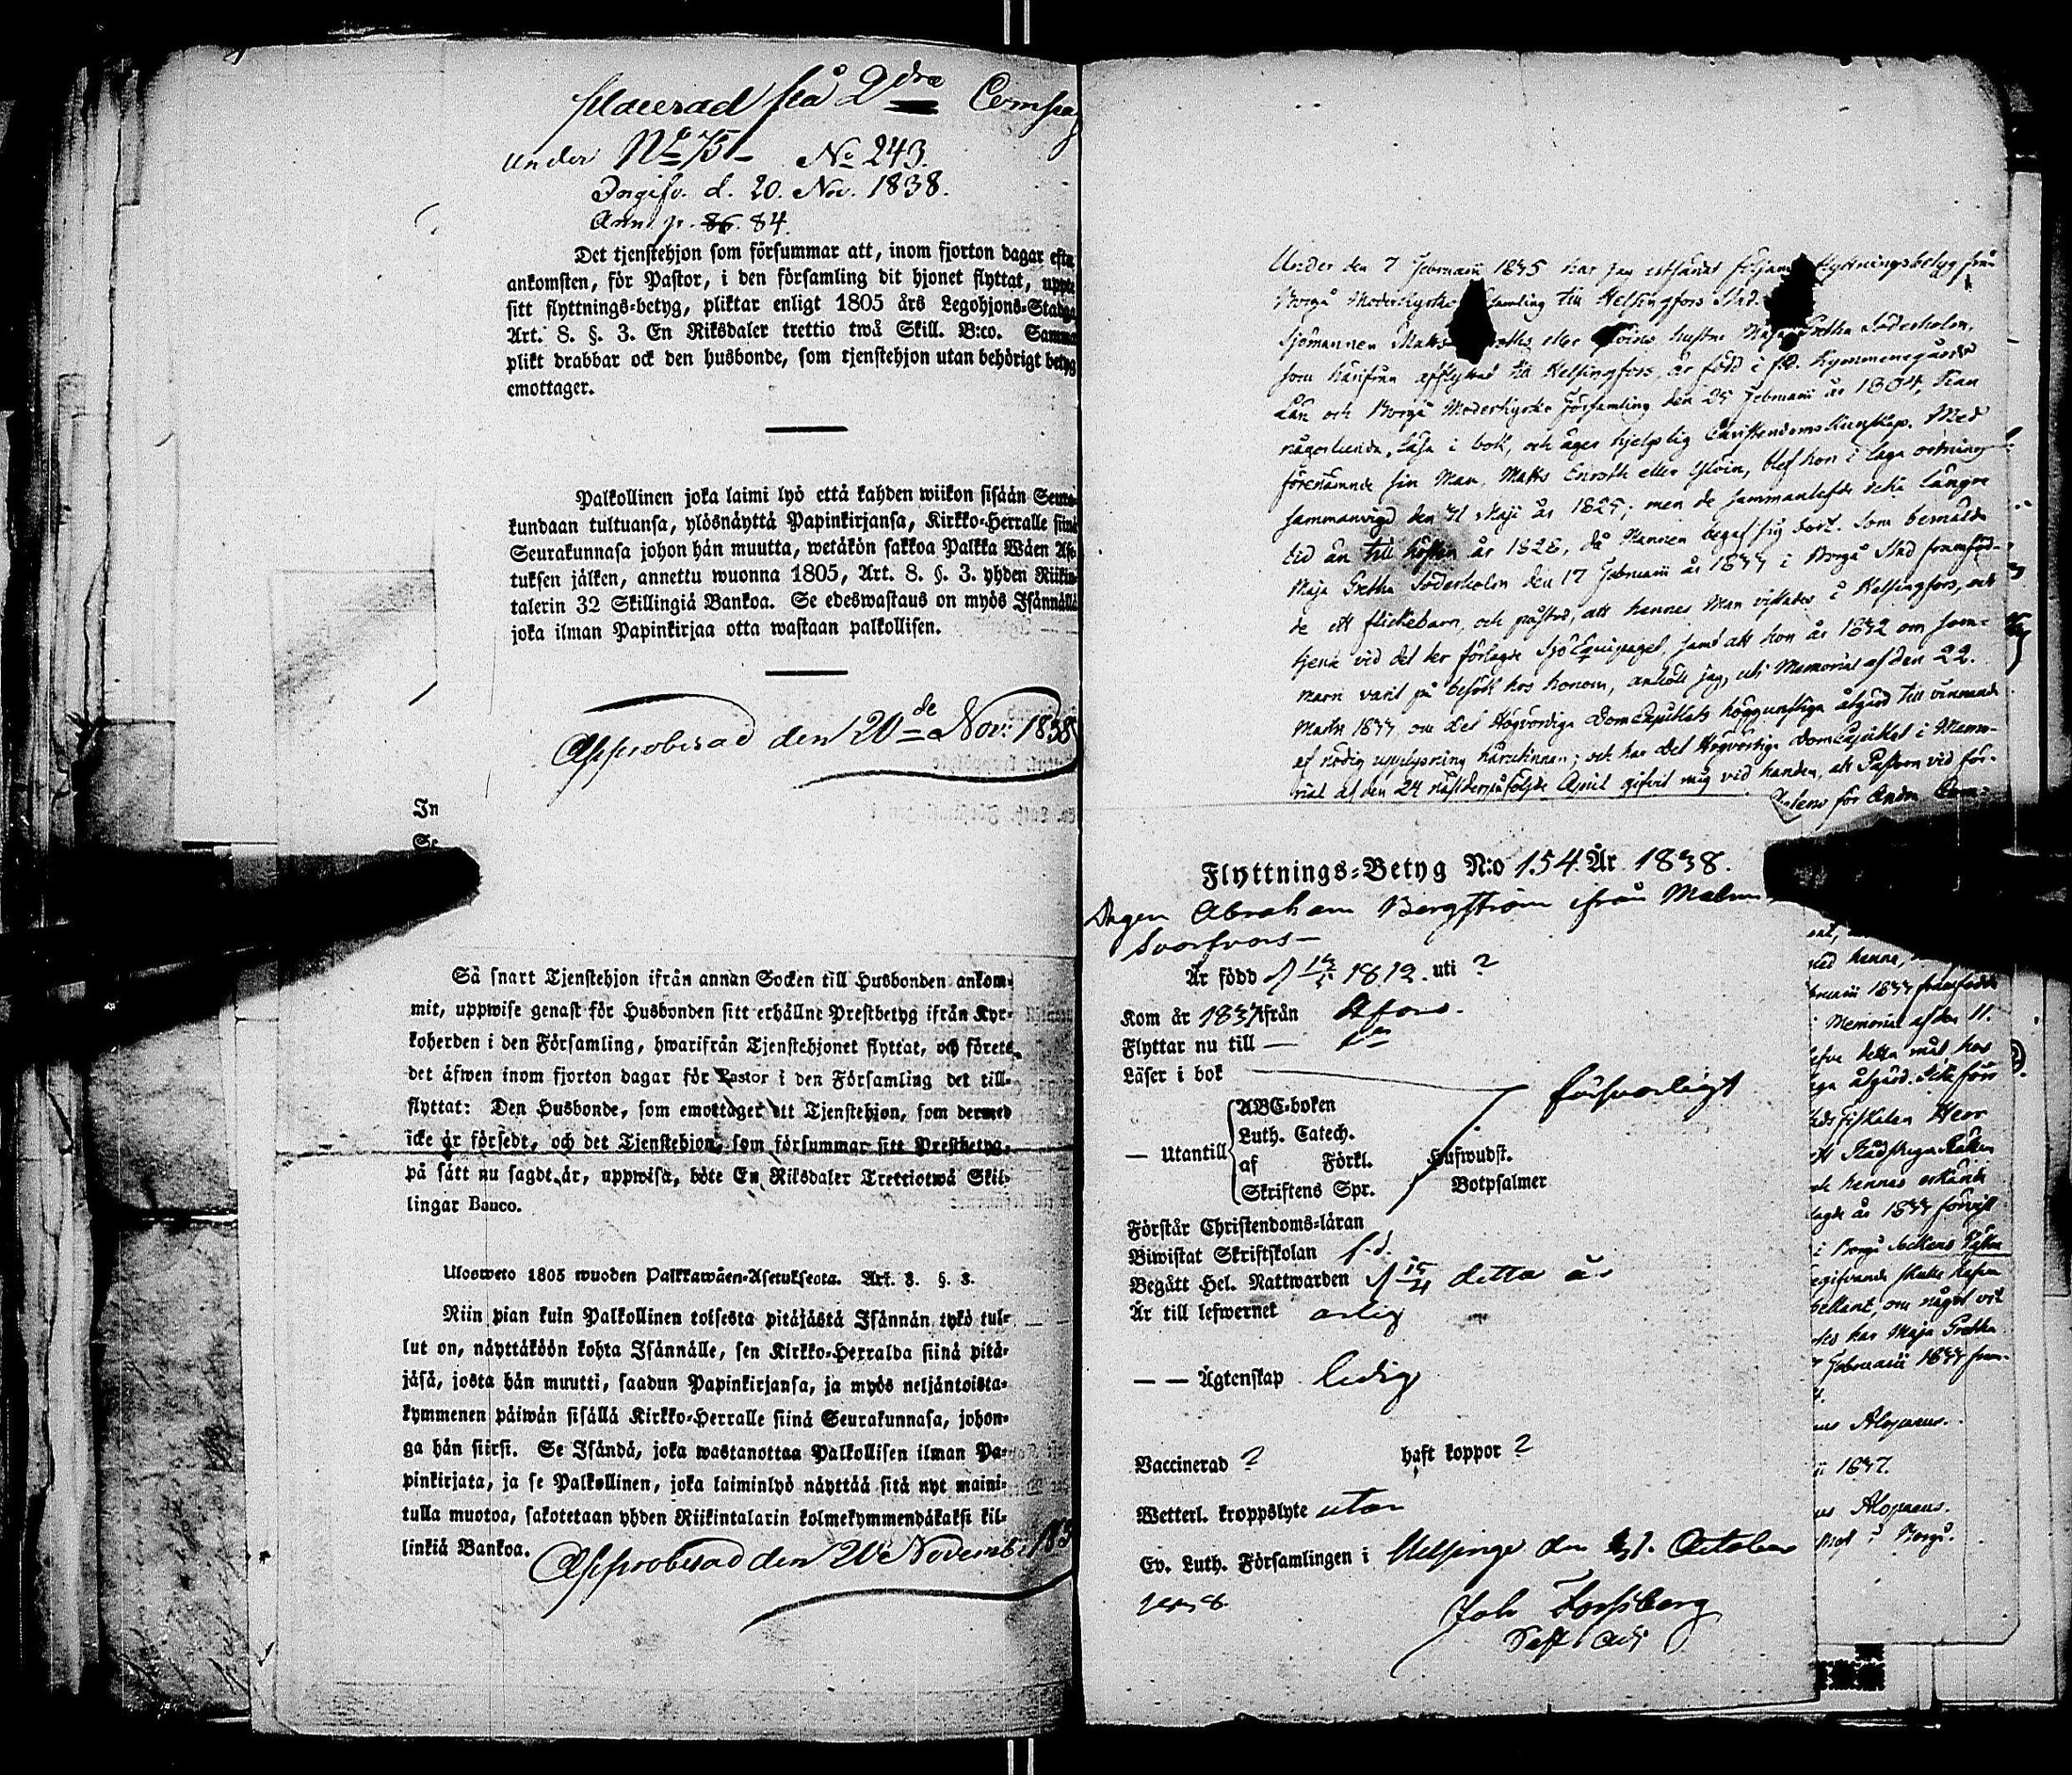 Placerad på 2dra Compag
under No 75 No 243.
Ingifv. d. 20. Nov. 1838.
Ann. p. 86. 84.
Det tjenstehjon som försummar att, inom fjorton dagar efter
ankomsten, för Pastor, i den församling dit hjonet flyttat, uppte
sitt flyttnings-betyg, pliktar enligt 1805 års Legohjons-Stadga
Art. 8. §. 3. En Riksdaler trettio twå Skill. B:co. Samma
plikt drabbar ock den husbonde, som tjenstehjon utan behörigt betyg
emottager.
Palkollinen joka laimi lyö että kahden wiikon sisään Seura-
kundaan tultuansa, ylösnäyttä Papinkirjansa, Kirkko-Herralle siinä
Seurakunnasa johon hän muutta, wetäkön sakkoa Palkka Wäen Ase-
tuksen jälken, annettu wuonna 1805, Art. 8. §. 3. yhden Riikin-
talerin 32 Skillingiä Bankoa. Se edeswastaus on myös Isännällä
joka ilman Papinkirjaa otta wastaan palkollisen.
Approberad den 20de Nov: 1838
In
Se
Så snart Tjenstehjon ifrån annan Socken till Husbonden ankom-
mit, uppwise genast för Husbonden sitt erhållne Prestbetyg ifrån Kyr-
koherden i den Församling, hwarifrån Tjenstehjonet flyttat, och förete
det äfwen inom fjorton dagar för Pastor i den Församling det till-
flyttat: Den Husbonde, som emottager ett Tjenstehjon, som dermed
icke är försedt, och det Tjenstehjon, som försummar sitt Prestbetyg,
på sätt nu sagdt är, uppwisa, böte En Riksdaler Trettiotwå Skil-
lingar Banco.
Ulosweto 1805 wuoden Palkkawäen-Asetuksesta. Art. 8. §. 3.
Niin pian kuin Palkollinen toisesta pitäjästä Isännän tykö tul-
lut on, näyttäköön kohta Isännälle, sen Kirkko-Herralda siinä pitä-
jäsä, josta hän muutti, saadun Papinkirjansa, ja myös neljäntoista-
kymmenen päiwän sisällä Kirkko-Herralle siinä Seurakunnasa, johon-
ga hän siirsi. Se Isändä, joka wastanottaa Palkollisen ilman Pa-
pinkirjata, ja se Palkollinen, joka laiminlyö näyttää sitä nyt maini-
tulla muotoa, sakotetaan yhden Riikintalarin kolmekymmendäkaksi kil-
linkiä Bankoa.
Approberad den 20de Novemb: 183
Under den 7 Februarii 1835 har jag utfärdat följande flyttningsbetyg från
Borgå Moderkyrko samling till Helsingfors Stad.
Sjömannen Matts eller hustru Maja Gretha Söderholm,
som härifrån afflyttat till Helsingfors, är född i f.d. Kymmenegårds
Län och Borgå Moderkyrko Församling den 25 Februarii år 1804, kan
någorlunda läsa i bok, och äger hjelplig Christendoms Kunskap. Med
förenämnde sin Man, Matts Enroth eller, blef hon i laga ordning
sammanvigd den 31 Maji år 1825; men de sammanlefde icke längre
tid än till hösten år 1828, då Mannen begaf sig bort. Som bemälde
Maja Gretha Söderholm den 17 Februarii år 1833 i Borgå Stad framföd-
de ett flickebarn, och påstod, att hennes Man vistades i Helsingfors, och
tjena vid det der förlagde SjöEquipaget, samt att hon år 1832 om som-
maren varit på besök hos honom, anhöll jag, uti Memorial af den 22.
Martii 1833 om det Högvördiga DomCapitlets höggunstiga åtgärd till vinnande
af nödig upplysning härutinnan; och har det Högvördiga DomCapitlet i Memo-
rial af den 24 nästderpåföljde April gifvit mig vid handen, att Pastorn vid för-
för Andra Com-
Flyttnings-Betyg N:o 154. År 1838.
Drgen Abraham Bergström ifrån Malm
Svartvars
Är född d 1812. uti ?
Kom år 1837 ifrån H fors.
Flyttar nu till —
Läser i bok
försvarligt
— Utantill
ABC-boken
Luth. Catech.
af Förkl. Hufwudst.
Skriftens Spr. Botpsalmer
Förstår Christendoms-läran
Biwistat Skriftskolan
Begått Hel. Nattwarden d 15/4 detta år
Är till lefwernet ärlig
— — Ägtenskap ledig
Vaccinerad ? haft koppor ?
Wetterl. kroppslyte utan
Ev. Luth. Församlingen i Helsinge den 31. October
1838.
Joh Forsberg
henne,
bruarii 1833 framfödde
Memorial af den 11.
detta mål, hos
åtgärd. Icke förr
dsfiskalen Herr
hennes erkände
år 1833
i Borgå Sockens Kyrka
om något vid
har Maja Gretha
Februarii 1833 fram-
Alopaeus.
1837.
Alopaeus.
i Borgå.